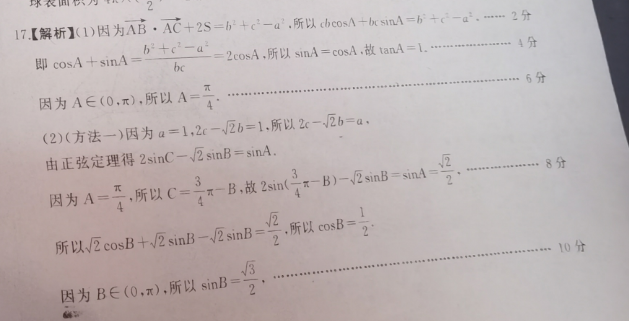 球表面积为
17.【解析】(1)因为$\overrightarrow{AB}\cdot\overrightarrow{AC}+2S=b^2+c^2-a^2$,所以$cb\cos A+bc\sin A=b^2+c^2-a^2$. …… 2分
即$\cos A+\sin A=\frac{b^2+c^2-a^2}{bc}=2\cos A$,所以$\sin A=\cos A$,故$\tan A=1$. …… 4分
因为$A\in(0,\pi)$,所以$A=\frac{\pi}{4}$. …… 6分
(2)(方法一)因为$a=1,2c-\sqrt{2}b=1$,所以$2c-\sqrt{2}b=a$,
由正弦定理得$2\sin C-\sqrt{2}\sin B=\sin A$.
因为$A=\frac{\pi}{4}$,所以$C=\frac{3}{4}\pi-B$,故$2\sin(\frac{3}{4}\pi-B)-\sqrt{2}\sin B=\sin A=\frac{\sqrt{2}}{2}$, …… 8分
所以$\sqrt{2}\cos B+\sqrt{2}\sin B-\sqrt{2}\sin B=\frac{\sqrt{2}}{2}$,所以$\cos B=\frac{1}{2}$.
因为$B\in(0,\pi)$,所以$\sin B=\frac{\sqrt{3}}{2}$, …… 10分